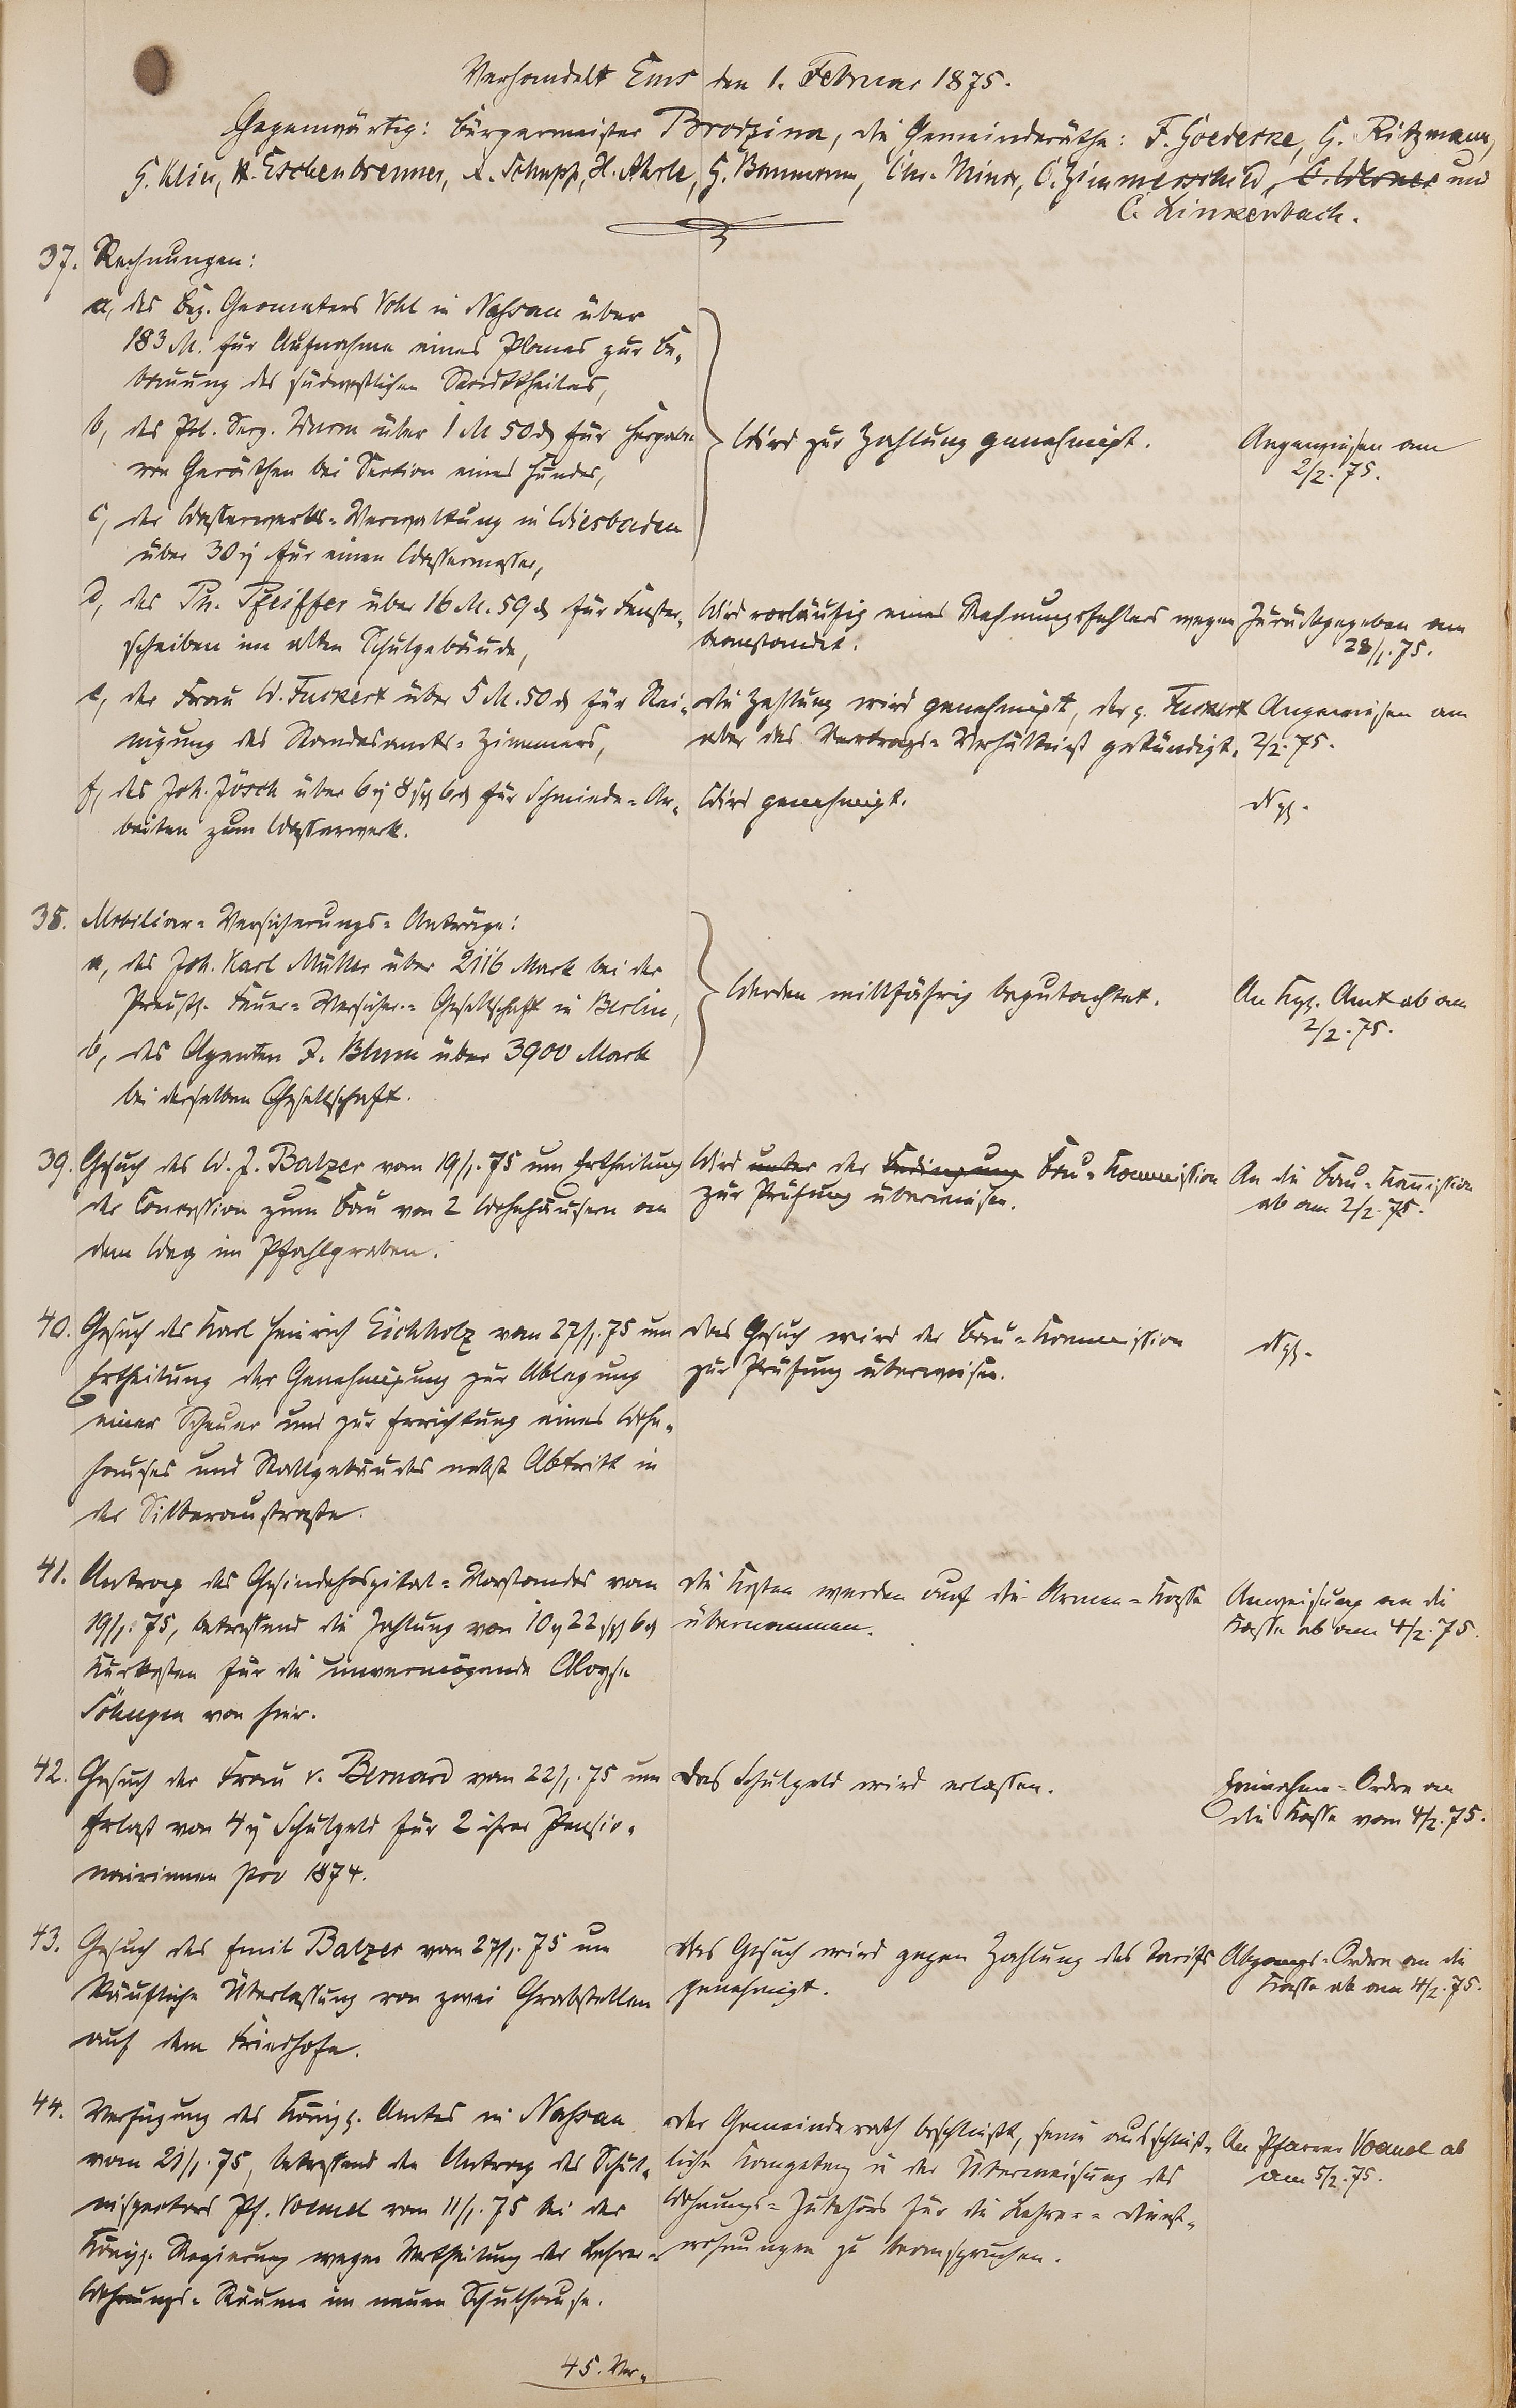 Verhandelt Ems den 1. Februar 1875.
Gegenwärtig: Bürgermeister Brodzina, die Gemeinderäthe: F. Goedecke, G. Ritzmann,
G. Klein, H. Eschenbrenner, A. Schupp, H. Ahrle, G. Baumann, Chr. Minor, C. Zimmerschild, und
C. Linkenbach.
37. Rechnungen:
a, des Bez. Geometers Vohl in Nassau über
183 M. für Aufnahme eines Planes zur Be-
bauung des südwestlichen Stadttheiles,
b, des Pol. Serg. Wurm über 1 M 50 ₰ für Hergabe
von Geräthen bei Section eines Hundes,
c, der Wasserwerks-Verwaltung in Wiesbaden
über 30 für einen Wassermesser,
Wird zur Zahlung genehmigt.
Angewiesen am
2/2. 75.
d, des Ph. Pfeiffer über 16 M. 59 ₰ für Fenster-
scheiben im alten Schulgebäude,
Wird vorläufig eines Rechnungsfehlers wegen
beanstandet.
Zurückgegeben am
28/1. 75.
e, der Frau W. Fuckert über 5 M. 50 ₰ für Rei-
nigung des Standesamts-Zimmers,
Die Zahlung wird genehmigt, der p. Fuckert
aber das Vertrags-Verhältniß gekündigt.
Angewiesen am
2/2. 75.
f, des Joh. Jösch über 6 8 6 für Schmiede-Ar-
beiten zum Wasserwerk.
Wird genehmigt.
Dsgl.
38. Mobiliar-Versicherungs-Anträge:
a, des Joh. Karl Müller über 2116 Mark bei der
Preuß. Feuer-Versicher.-Gesellschaft in Berlin,
b, des Agenten J. Blum über 3900 Mark
bei derselben Gesellschaft.
Werden willfährig begutachtet.
An Kgl. Amt ab am
2/2. 75.
39. Gesuch des W. J. Balzer vom 19/1. 75 um Ertheilung
der Concession zum Bau von 2 Wohnhäusern an
dem Weg im Pfahlgraben.
Wird unter der Bedingung Bau-Kommission
zur Prüfung überwiesen.
An die Bau-Kommission
ab am 2/2. 75.
40. Gesuch des Karl Heinrich Eichholz vom 27/1. 75 um
Ertheilung der Genehmigung zur Ablegung
einer Scheuer und zur Errichtung eines Wohn-
hauses und Stallgebäudes nebst Abtritt in
der Silberaustraße.
Das Gesuch wird der Bau-Kommission
zur Prüfung überwiesen.
Dsgl.
41. Antrag des Gesindehospital-Vorstandes vom
19/1. 75, betreffend die Zahlung von 10 22 6
Kurkosten für die unvermögende Aloyse
Söhngen von hier.
Die Kosten werden auf die Armen-Kasse
übernommen.
Anweisung an die
Kasse ab am 4/2. 75.
42. Gesuch der Frau v. Bernard vom 22/1. 75 um
Erlaß von 4 Schulgeld für 2 ihrer Pensio-
nairinnen pro 1874.
Das Schulgeld wird erlassen.
Einnahme-Ordre an
die Kasse vom 4/2. 75.
43. Gesuch des Emil Balzer vom 27/1. 75 um
käufliche Überlassung von zwei Grabstellen
auf dem Friedhofe.
Das Gesuch wird gegen Zahlung des Tarifs
genehmigt.
Abgangs-Ordre an die
Kasse ab am 4/2. 75.
44. Verfügung des Königl. Amtes in Nassau
vom 21/1. 75, betreffend den Antrag des Schul-
inspectors Pf. Voemel vom 11/1. 75 bei der
Königl. Regierung wegen Vertheilung der Lehrer-
Wohnungs-Räume im neuen Schulhause.
Der Gemeinderath beschließt, seine ausschließ-
liche Kompetenz in der Überweisung des
Wohnungs-Zubehörs für die Lehrer-Dienst-
wohnungen zu beanspruchen.
An Pfarrer Voemel ab
am 5/2. 75.
45. Ver-